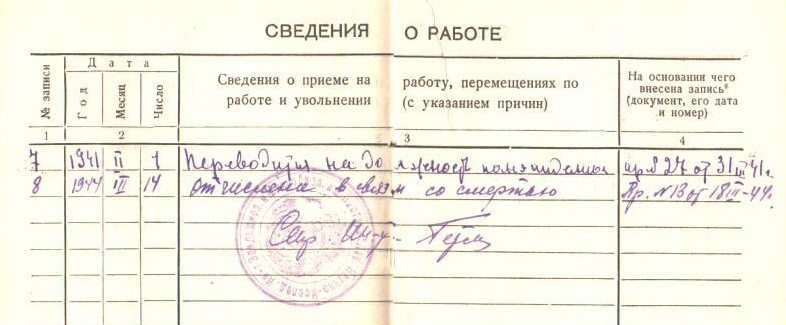 СВЕДЕНИЯ О РАБОТЕ
№ записи
Дата
Год
Месяц
Число
Сведения о приеме на работу, перемещениях по
работе и увольнении (с указанием причин)
На основании чего
внесена запись
(документ, его дата
и номер)
1 2 3 4
7 1941 II 1 Переводится на должность 27 от 31 41.
8 1944 III 14 отчислена в связи со смертью Пр. N 13 от 18 III-44.